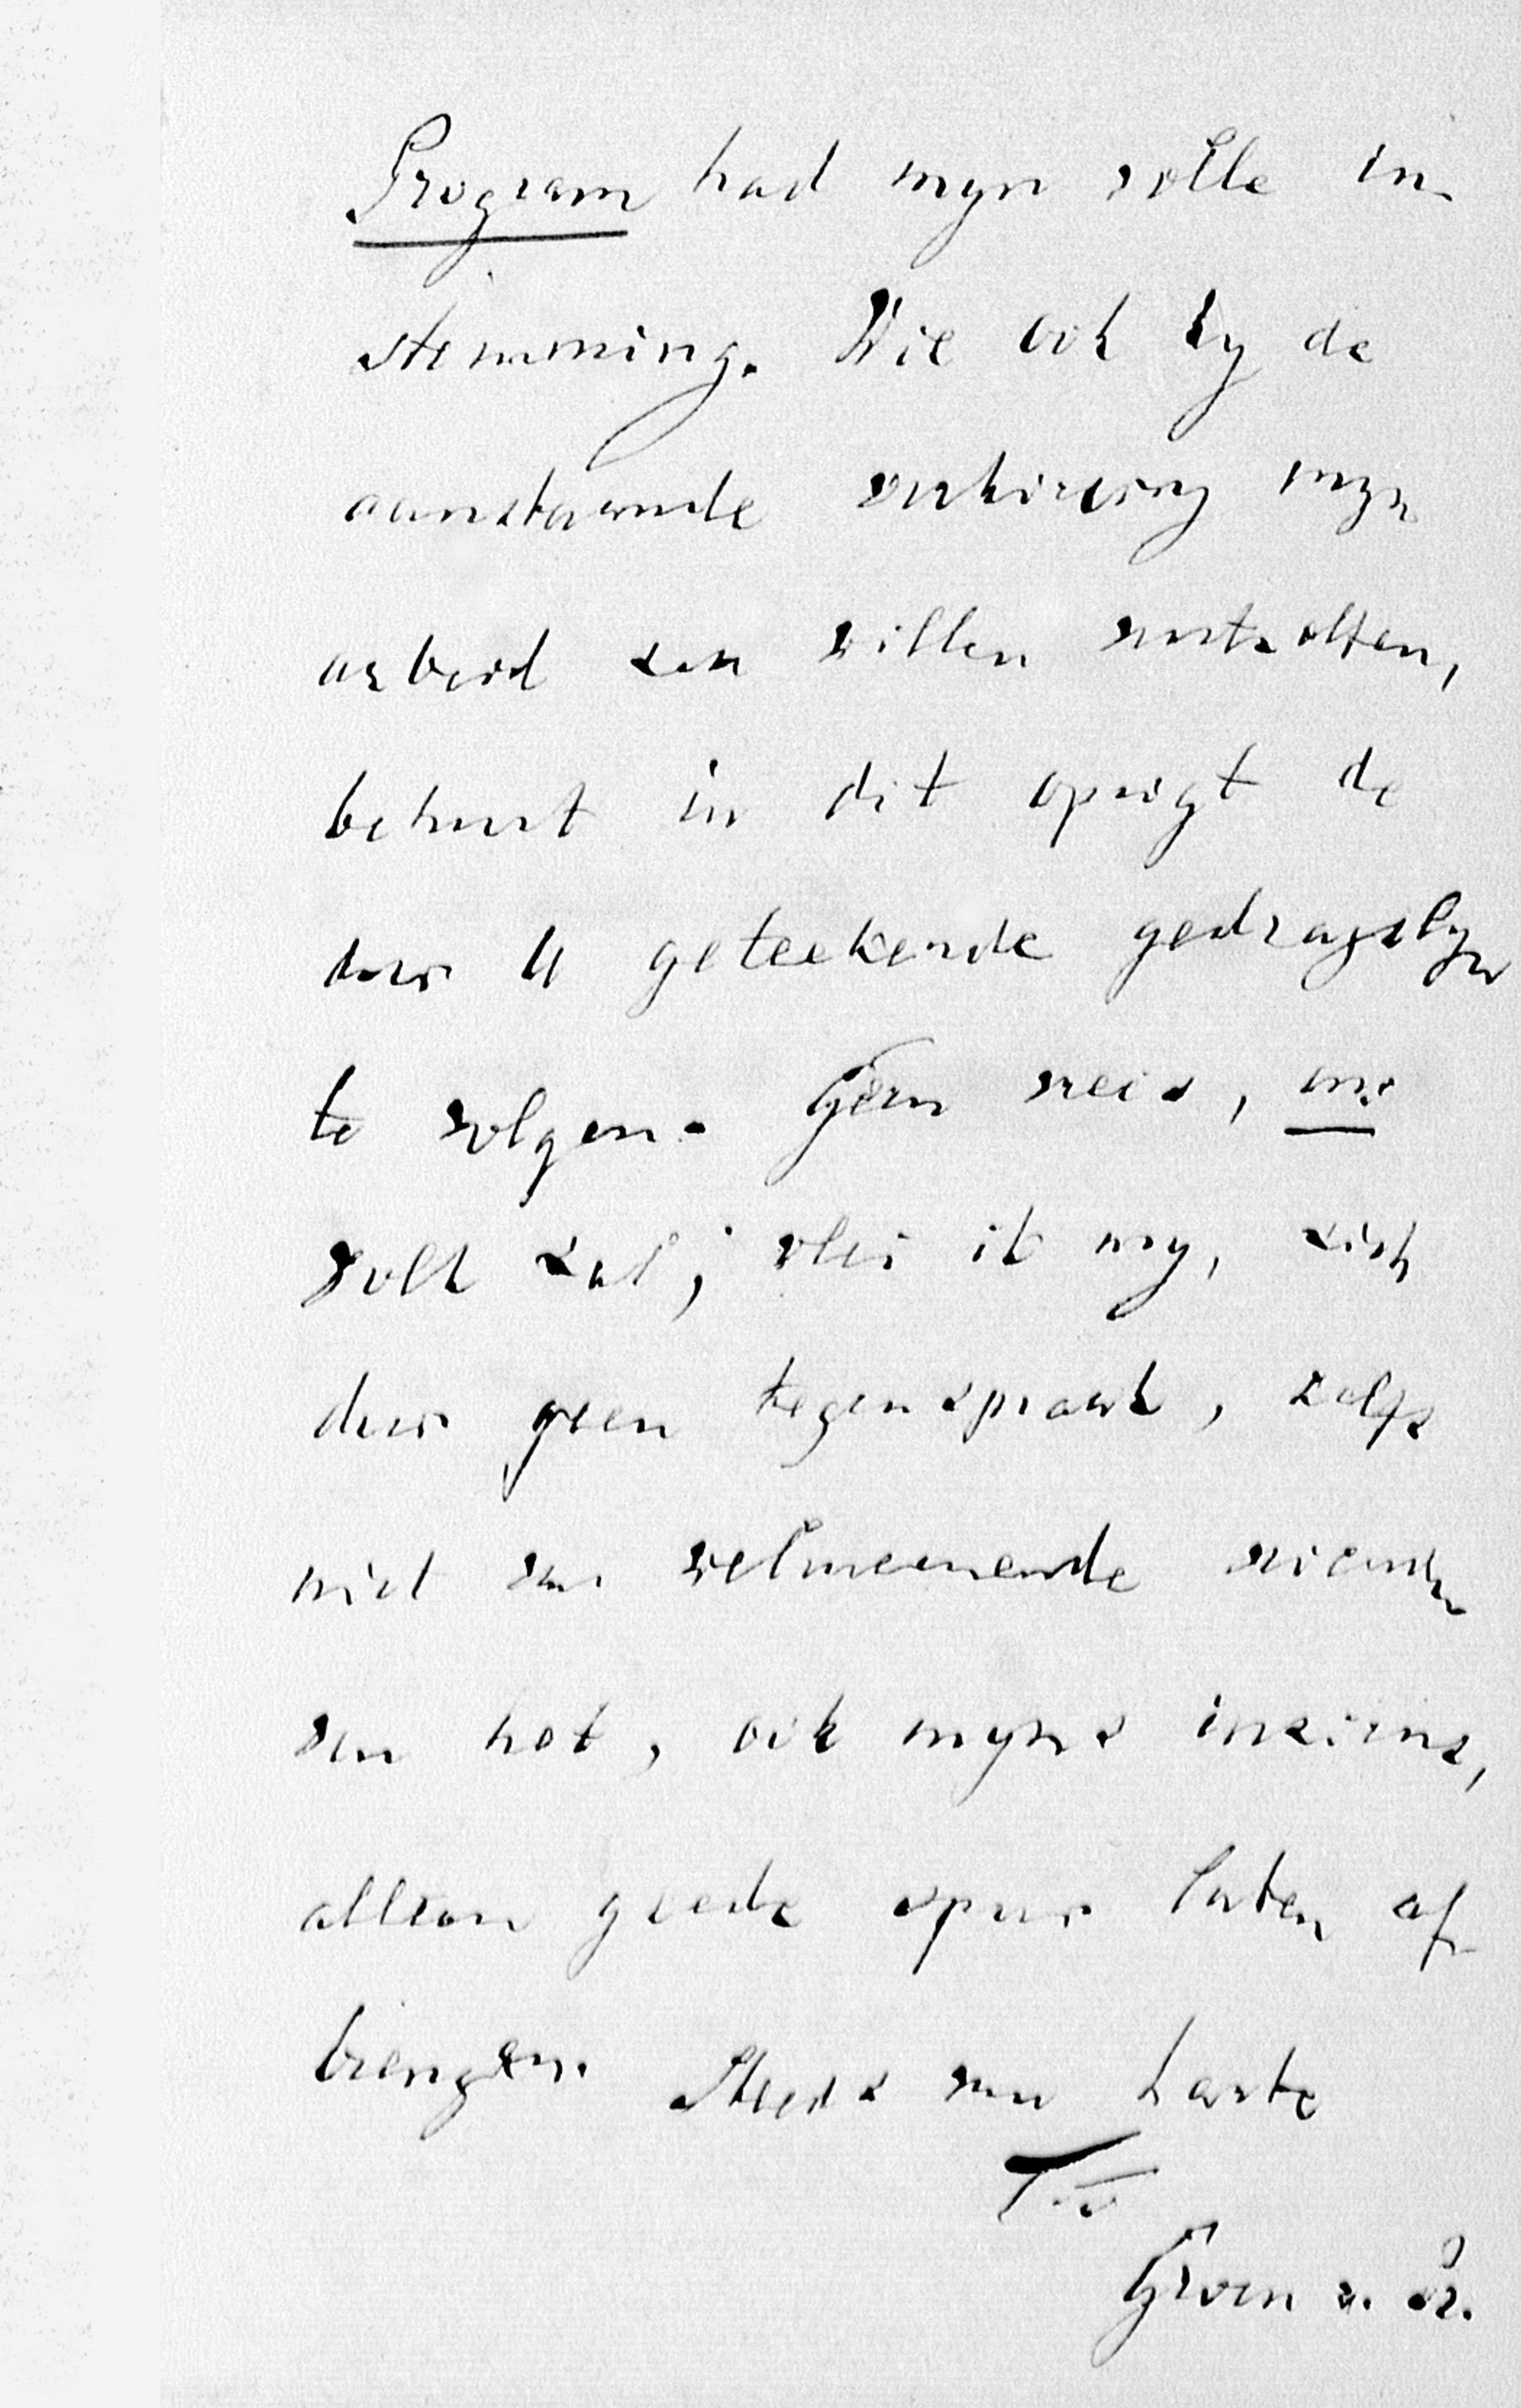 Program had myn volle in-
stemming. Wie ook by de
aanstaande verkiezing myn
arbeid zou willen voortzetten,
behoort in dit opzigt de
door U geteekende gedragslyn
te volgen. Geen vrees, ons
volk zal, vlei ik my, zich
door geen tegenspraak, zelfs
niet van welmeenende vrienden
van het, ook myns inziens,
alleen goede spoor laten af-
brengen. Steeds van harte
T.
Groen v. Pr.